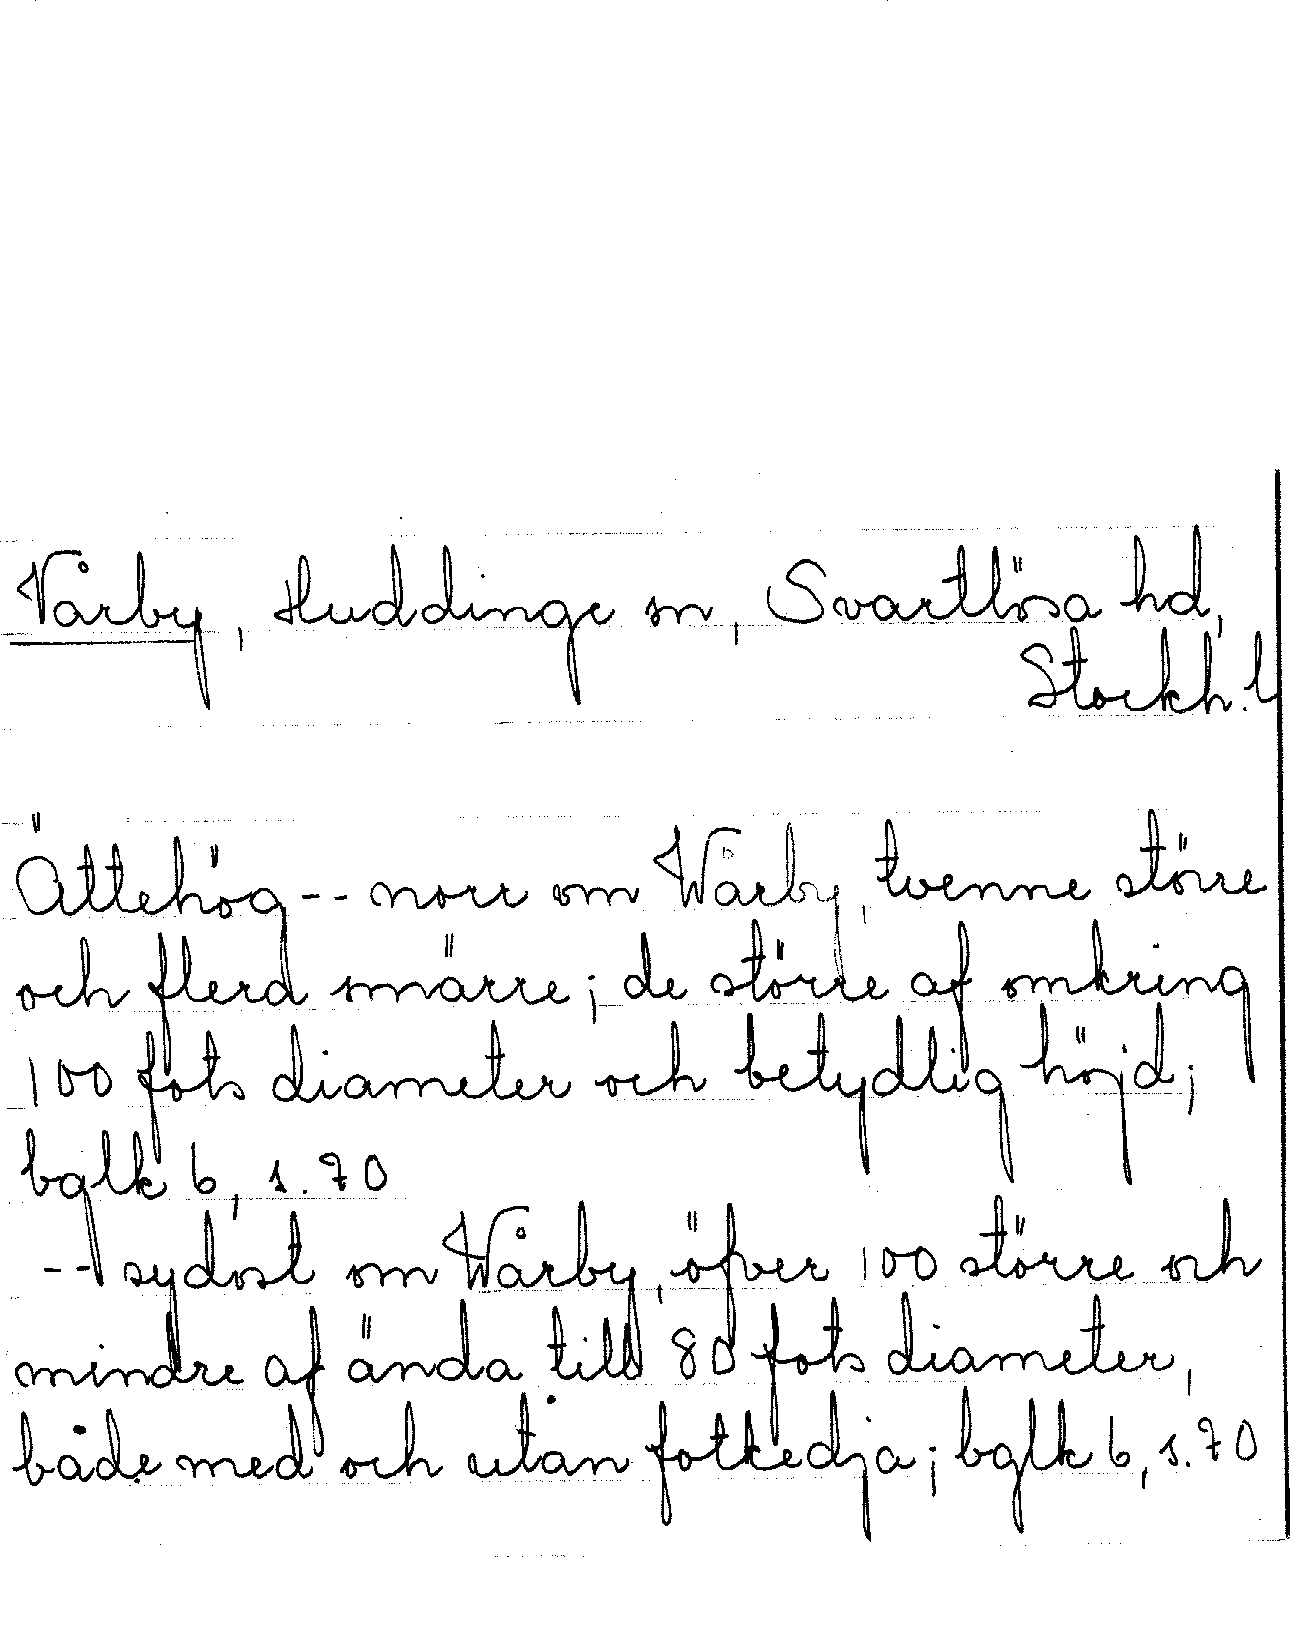 Vårby, Huddinge sn, Svartlösa hd,
Stockh. l
Ättehög -- norr om Wårby, tvenne större
och flera smärre; de större af omkring
100 fots diameter och betydlig höjd;
bglk 6, s. 70
-- sydost om Wårby, öfver 100 större och
mindre af ända till 80 fots diameter,
både med och utan fotkedja; bglk 6, s. 70